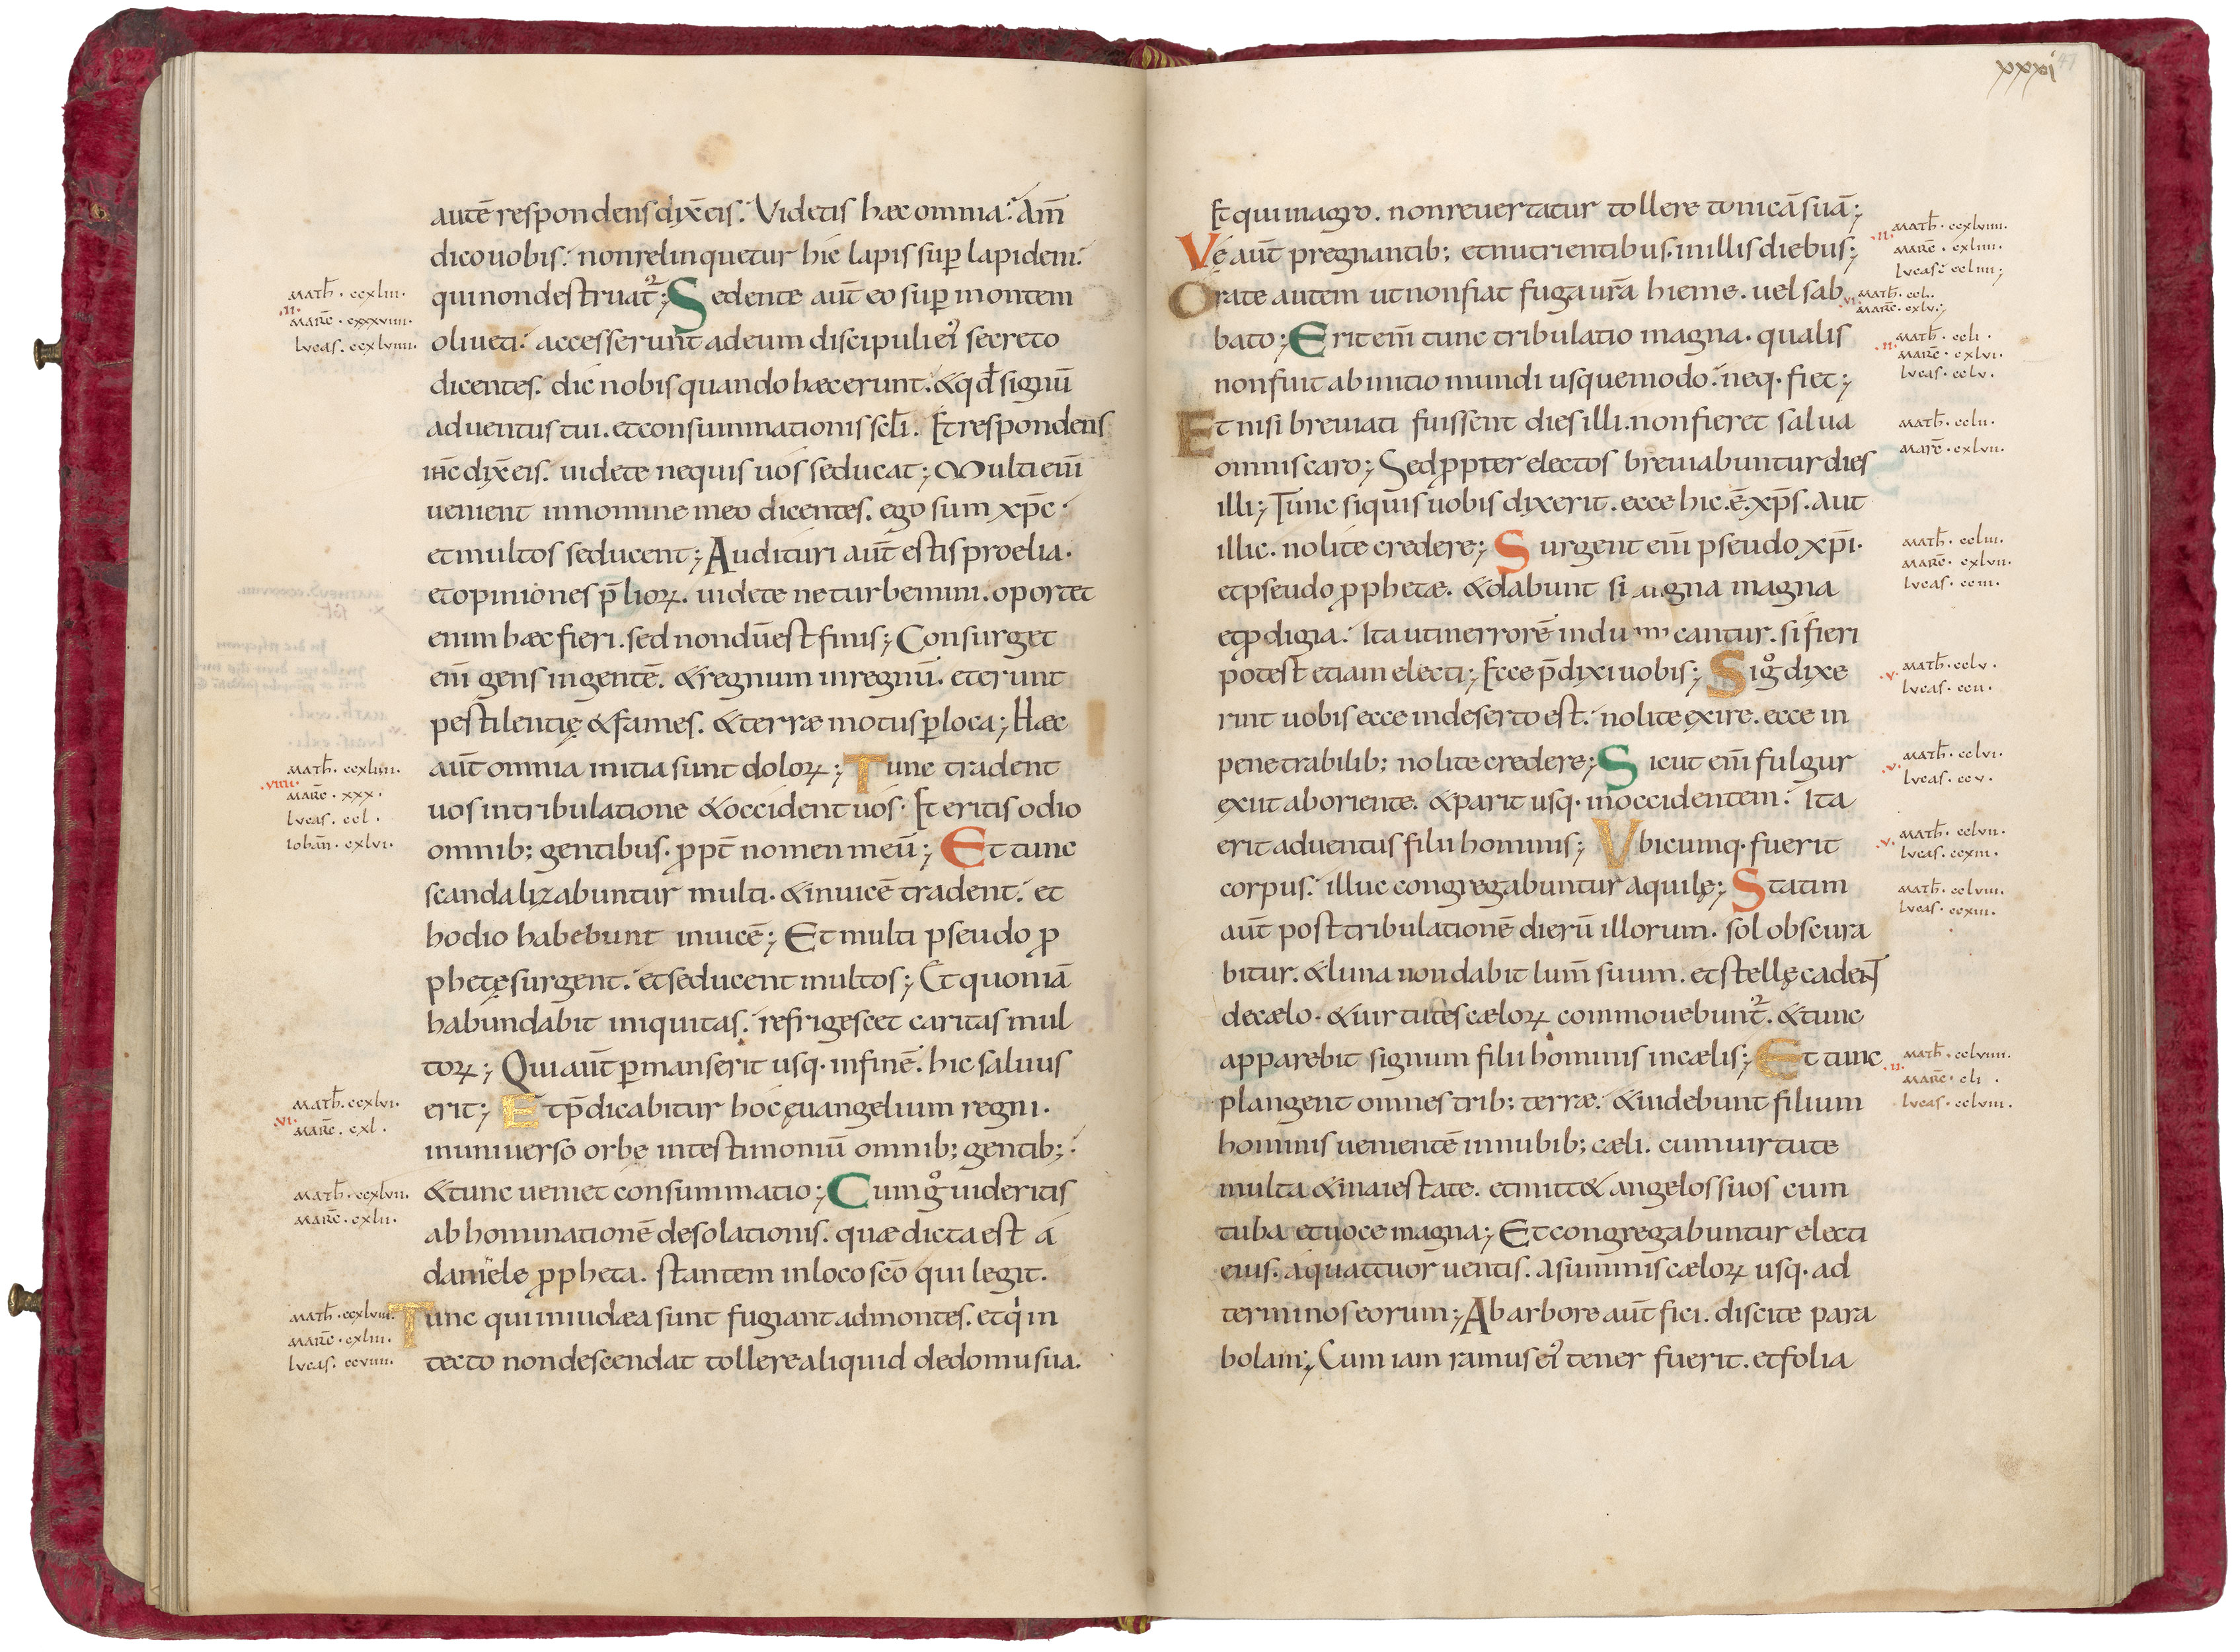 autē respondens dix̄ eis. Videtis hæc omnia. Am̄
dico uobis. non relinquetur hic lapis sup lapidem.
math̄ . ccxliii.
qui non destruat̄; Sedente aut̄ eo sup montem
.ii.
marc̄ . cxxxviiii.
lucas . ccxlviiii.
oliueti. accesserunt ad eum discipuli ei' secreto
dicentes. dic nobis quando hæc erunt. & qd̄ signū
aduentus tui. et consummationis scl̄i. Et respondens
ih̄c dix̄ eis. uidete nequis uos seducat; Multi eni̅
uenient in nomine meo dicentes. ego sum xp̄c.
et multos seducent; Audituri aut̄ estis proelia.
et opiniones p̄lioꝝ. uidete ne turbemini. oportet
enim hæc fieri. sed nondū est finis; Consurget
eni̅ gens in gentē. & regnum in regnū. et erunt
pestilentię & fames. & terræ motus ꝑ loca; Hæc
math̄ . ccxliiii.
aut̄ omnia initia sunt doloꝝ; Tunc tradent
.viiii.
marc̄ . xxx.
uos in tribulatione & occident uos. Et eritis odio
lucas . ccl.
iohan̄ . cxlvi.
omnib; gentibus. ꝓpt̄ nomen meū; Et tunc
scandalizabuntur multi. & inuicē tradent. et
hodio habebunt inuicē; Et multi pseudo ꝓ
phetę surgent. et seducent multos; Et quoniā
habundabit iniquitas. refrigescet caritas mul
toꝝ; Qui aut̄ ꝑmanserit usq. in finē. hic saluus
math̄ . ccxlvi.
erit; Et p̄dicabitur hoc ęuangelium regni.
.vi.
marc̄ . cxl.
in uniuerso orbe in testimoniū omnib; gentib;
math̄ . ccxlvii.
& tunc ueniet consummatio; Cum gͦ uideritis
marc̄ . cxlii.
abhominationē desolationis. quæ dicta est á
daniele ꝓpheta. stantem in loco scō qui legit.
math̄ . ccxlviii.
Tunc qui in iudæa sunt fugiant ad montes. et q in
marc̄ . cxliii.
lucas . ccviiii.
tecto non descendat tollere aliquid de domu sua.
xxxi
47
Et qui in agro. non reuertatur tollere tonicā suā;
math̄ . ccxlviiii.
Vę aut̄ pregnantib; et nutrientibus. in illis diebus;
.ii.
marc̄ . cxliiii.
lucas̄ ccliiii;
Orate autem ut non fiat fuga ur̄a hieme. uel sab
vi
math̄ . ccl.
marc̄ . cxlv.
bato; Erit eni̅ tunc tribulatio magna. qualis
math̄ . ccli.
.ii.
marc̄ . cxlvi.
lucas . cclv.
non fuit ab initio mundi usque modo. neq. fiet;
Et nisi breuiati fuissent dies illi. non fieret salua
math̄ . cclii.
marc̄ . cxlvii.
omnis caro; Sed ꝓpter electos breuiabuntur dies
illi; Tunc si quis uobis dixerit. ecce hic. ē. xp̄s. Aut
illic. nolite credere; Surgent eni̅ pseudo xp̄i.
math̄ . ccliii.
marc̄ . cxlvii.
et pseudo ꝓphetæ. & dabunt signa magna
lucas . cciii.
et ꝓdigia. Ita ut in errorē inducantur. si fieri
potest etiam electi; Ecce p̄dixi uobis; Si gͦ dixe
math̄ . cclv.
.v.
lucas . ccii.
rint uobis ecce in deserto est. nolite exire. ecce in
penetrabilib; nolite credere; Sicut eni̅ fulgur
math̄ . cclvi.
.v.
lucas . ccv.
exiit ab oriente. & parit usq. in occidentem. Ita
erit aduentus filii hominis; Vbicumq. fuerit
math̄ . cclvii.
.v.
lucas . ccxiii.
corpus. illuc congregabuntur aquilę; Statim
math̄ . cclviii.
lucas . ccxiii.
aut̄ post tribulationē dierū illorum. sol obscura
bitur. & luna non dabit lum̄ suum. et stellę cadent
de cælo. & uirtutes cæloꝝ commouebunt̄. & tunc
apparebit signum filii hominis in cælis; Et tunc
math̄ . cclviiii.
.ii.
marc̄ . cli.
lucas . cclviii.
plangent omnes trib; terræ. & uidebunt filium
hominis uenientē in nubib; cæli. cum uirtute
multa & maiestate. et mitt& angelos suos cum
tuba et uoce magna; Et congregabuntur electi
eius. a quattuor uentis. a summis cæloꝝ usq. ad
terminos eorum; Ab arbore aut̄ fici. discite para
bolam; Cum iam ramus ei' tener fuerit. et folia